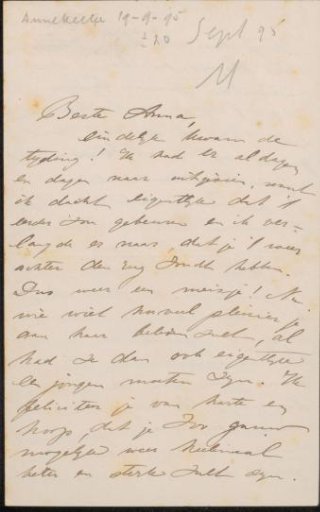 Annekehe 19-9-95
± 20 Sept 95
M
Beste Anna,
eindelijk kwam de
tijding! Ik had er al dagen
en dagen naar uitgezien, want
ik dacht eigenlijk dat 't
eerder zou gebeuren en ik ver-
langde er naar, dat je 't weer
achter den rug zoudt hebben.
Dus weer een meisje! Nu
wie weet hoeveel plezier je
aan haar beleven zult, al
had 't dan ook eigenlijk
een jongen moeten zijn. Ik
feliciteer je van harte en
hoop, dat je zoo gauw
mogelijk weer heelemaal
beter en sterk zult zijn.